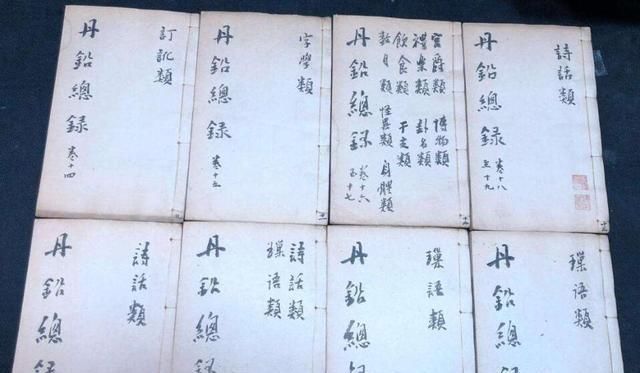 詩話類
丹鉛總录 卷十八
至十九
宮爵類 博物類
禮樂類 卦名類
飲食類 干支類
數目類 怪異類 身體類
丹鉛總录 卷十六
至十七
字學類
丹鉛總录 卷十五
訂訛類
丹鉛總录 卷十四
璅语類
丹鉛總录
璅语類
丹鉛總录
詩話類
璅语類
丹鉛總录
詩話類
丹鉛總录